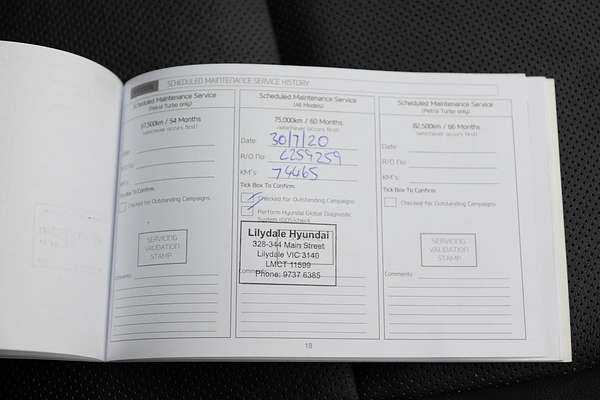 SCHEDULED MAINTENANCE SERVICE HISTORY
Scheduled Maintenance Service
(Petrol Turbo only)
67,500km / 54 Months
(whichever occurs first)
Date:
R/O No:
KM's:
Tick Box To Confirm:
Checked for Outstanding Campaigns
SERVICING
VALIDATION
STAMP
Comments:
Scheduled Maintenance Service
(All Models)
75,000km / 60 Months
(whichever occurs first)
Date: 30/7/20
R/O No: 6259259
KM's: 74465
Tick Box To Confirm:
Checked for Outstanding Campaigns
Perform Hyundai Global Diagnostic
System (GDS) check
Lilydale Hyundai
328-344 Main Street
Lilydale VIC 3140
LMCT 11599
Phone: 9737 6385
Comments:
Scheduled Maintenance Service
(Petrol Turbo only)
82,500km / 66 Months
(whichever occurs first)
Date:
R/O No:
KM's:
Tick Box To Confirm:
Checked for Outstanding Campaigns
SERVICING
VALIDATION
STAMP
Comments:
18